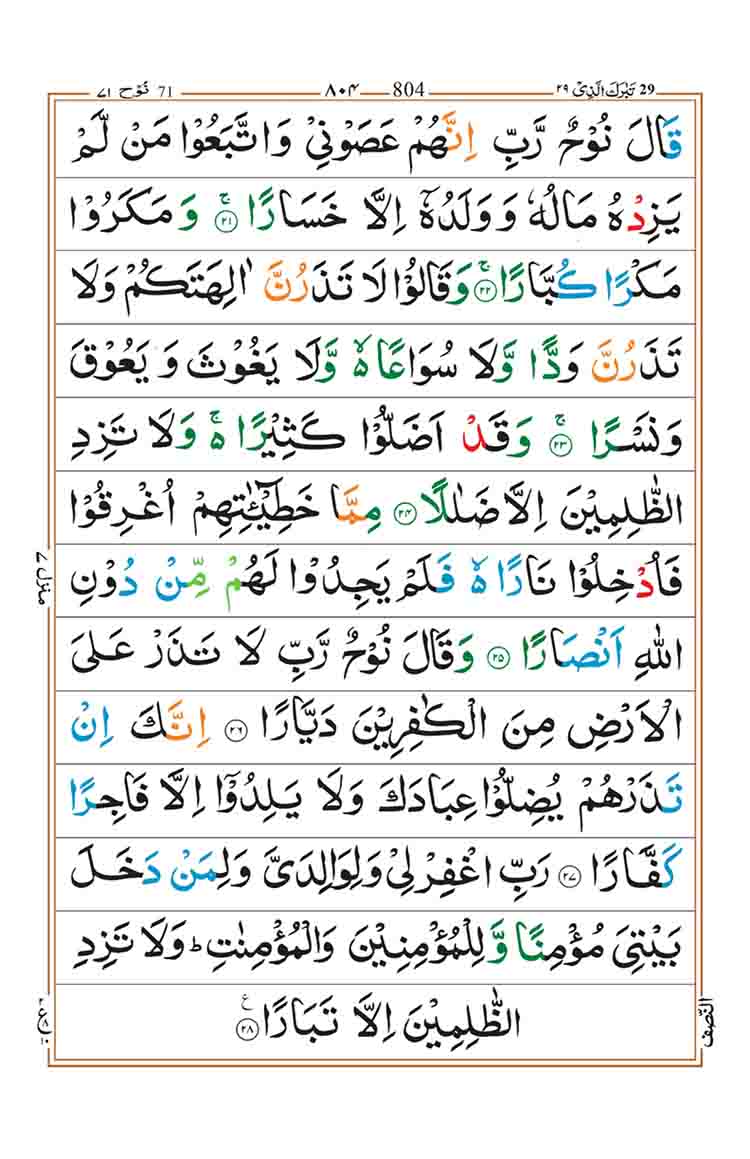 29 تَبٰرَكَ الَّذِیْ ۲۹ 804 ۸۰۴ 71 نُوْح ۷۱
قَالَ نُوْحٌ رَّبِّ اِنَّهُمْ عَصَوْنِیْ وَاتَّبَعُوْا مَنْ لَّمْ
یَزِدْهُ مَالُهٗ وَ وَلَدُهٗۤ اِلَّا خَسَارًا ۚ ﴿۲۱﴾ وَ مَكَرُوْا
مَكْرًا كُبَّارًا ۚ ﴿۲۲﴾ وَقَالُوْا لَا تَذَرُنَّ اٰلِهَتَكُمْ وَلَا
تَذَرُنَّ وَدًّا وَّلَا سُوَاعًا ۙ۬ وَّلَا یَغُوْثَ وَ یَعُوْقَ
وَنَسْرًا ۚ ﴿۲۳﴾ وَقَدْ اَضَلُّوْا كَثِیْرًا ۚ۬ وَلَا تَزِدِ
الظّٰلِمِیْنَ اِلَّا ضَلٰلًا ﴿۲۴﴾ مِمَّا خَطِیْٓـٰٔتِهِمْ اُغْرِقُوْا
فَاُدْخِلُوْا نَارًا ۙ۬ فَلَمْ یَجِدُوْا لَهُمْ مِّنْ دُوْنِ
اللّٰهِ اَنْصَارًا ﴿۲۵﴾ وَقَالَ نُوْحٌ رَّبِّ لَا تَذَرْ عَلَی
الْاَرْضِ مِنَ الْكٰفِرِیْنَ دَیَّارًا ﴿۲۶﴾ اِنَّكَ اِنْ
تَذَرْهُمْ یُضِلُّوْا عِبَادَكَ وَلَا یَلِدُوْۤا اِلَّا فَاجِرًا
كَفَّارًا ﴿۲۷﴾ رَبِّ اغْفِرْ لِیْ وَلِوَالِدَیَّ وَلِمَنْ دَخَلَ
بَیْتِیَ مُؤْمِنًا وَّلِلْمُؤْمِنِیْنَ وَالْمُؤْمِنٰتِ ؕ وَلَا تَزِدِ
الظّٰلِمِیْنَ اِلَّا تَبَارًا ﴿۲۸﴾ ع
منزل ۷
النصف